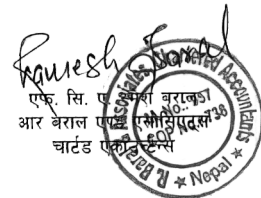 Ramesh
एफ. सि. ए. रमेश बराल
आर बेराल एण्ड एसोसिएट्स
चार्टड एकाउन्टेन्स
R. Baral & Associates, Chartered Accountants
Nepal